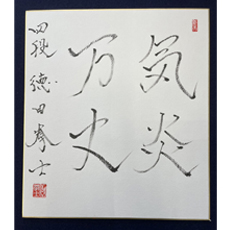 気炎
万丈
四段 徳田拳士